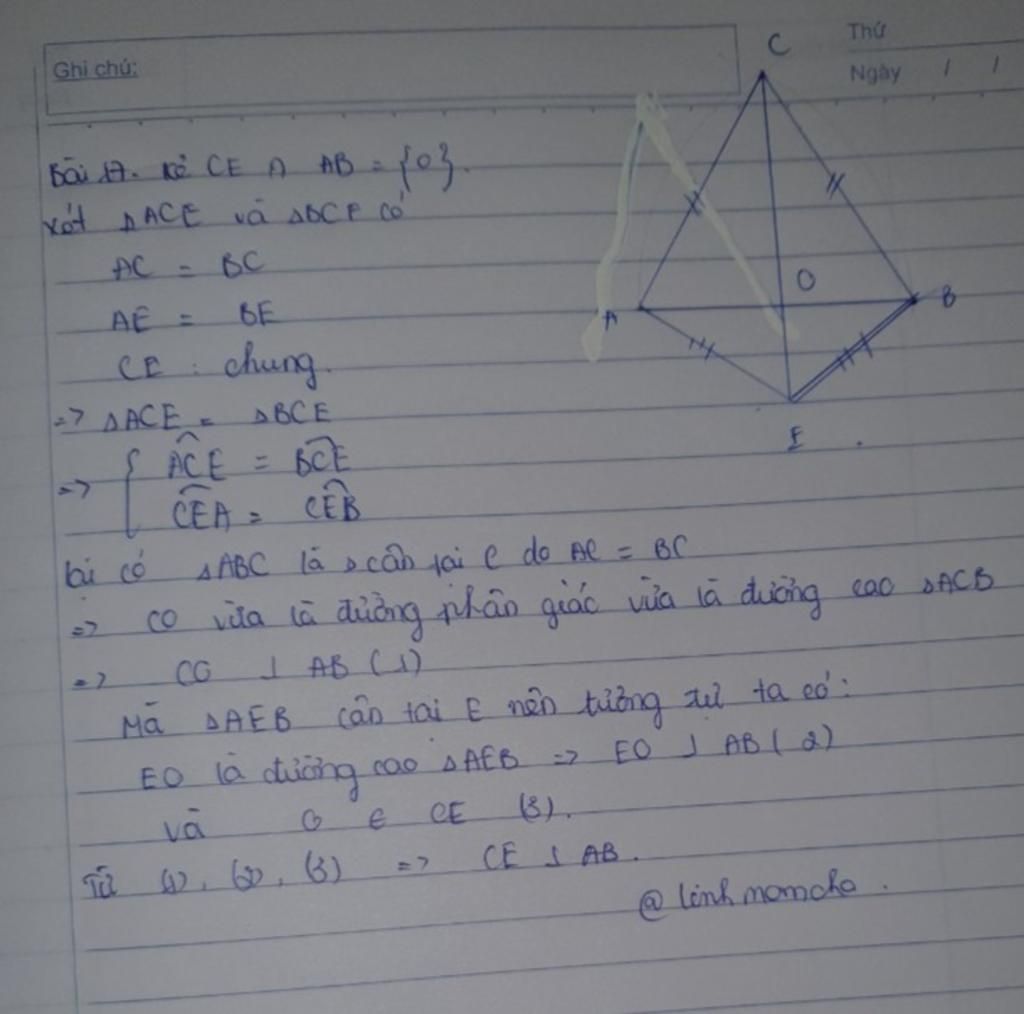 Ghi chú:
Thứ
Ngày / /
C
O
A
B
E
Bài 17. Kẻ CE ∩ AB = {O}.
Xét ΔACE và ΔBCE có
AC = BC
AE = BE
CE : chung.
=> ΔACE = ΔBCE
=> { ACE = BCE
CEA = CEB
lại có ΔABC là Δ cân tại C do AC = BC
=> CO vừa là đường phân giác vừa là đường cao ΔACB
=> CO ⊥ AB (1)
Mà ΔAEB cân tại E nên tương tự ta có:
EO là đường cao ΔAEB => EO ⊥ AB (2)
và O ∈ CE (3).
Từ (1), (2), (3) => CE ⊥ AB.
@ linhmomcho.